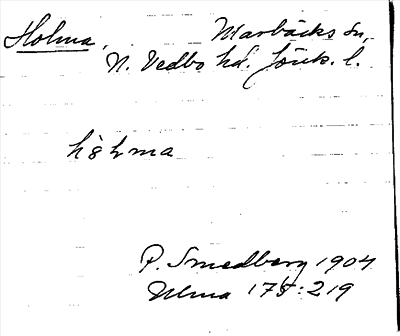 Holma, Marbäcks sn,
N. Vedbo hd. Jönk. l.
P. Smedberg 1904
Ulma 175:219